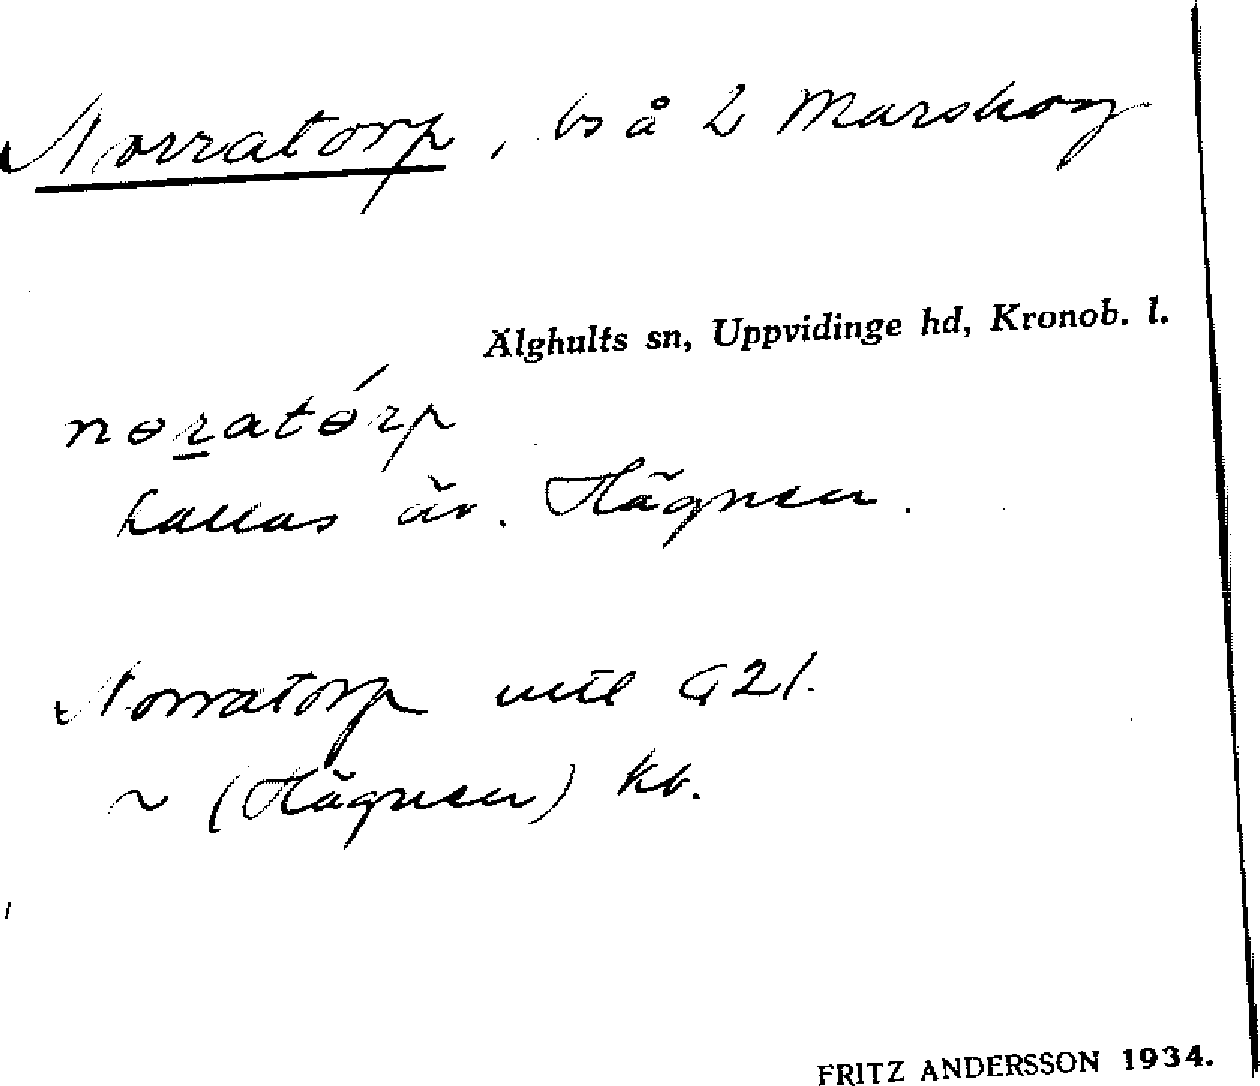 Norratorp, bs å 2 Marskog
Älghults sn, Uppvidinge hd, Kronob. l.
nɵratɵ́rp
kallas äv. Hägnen.
Norratorp utl G21.
~ (Hägnen) kb.
FRITZ ANDERSSON 1934.